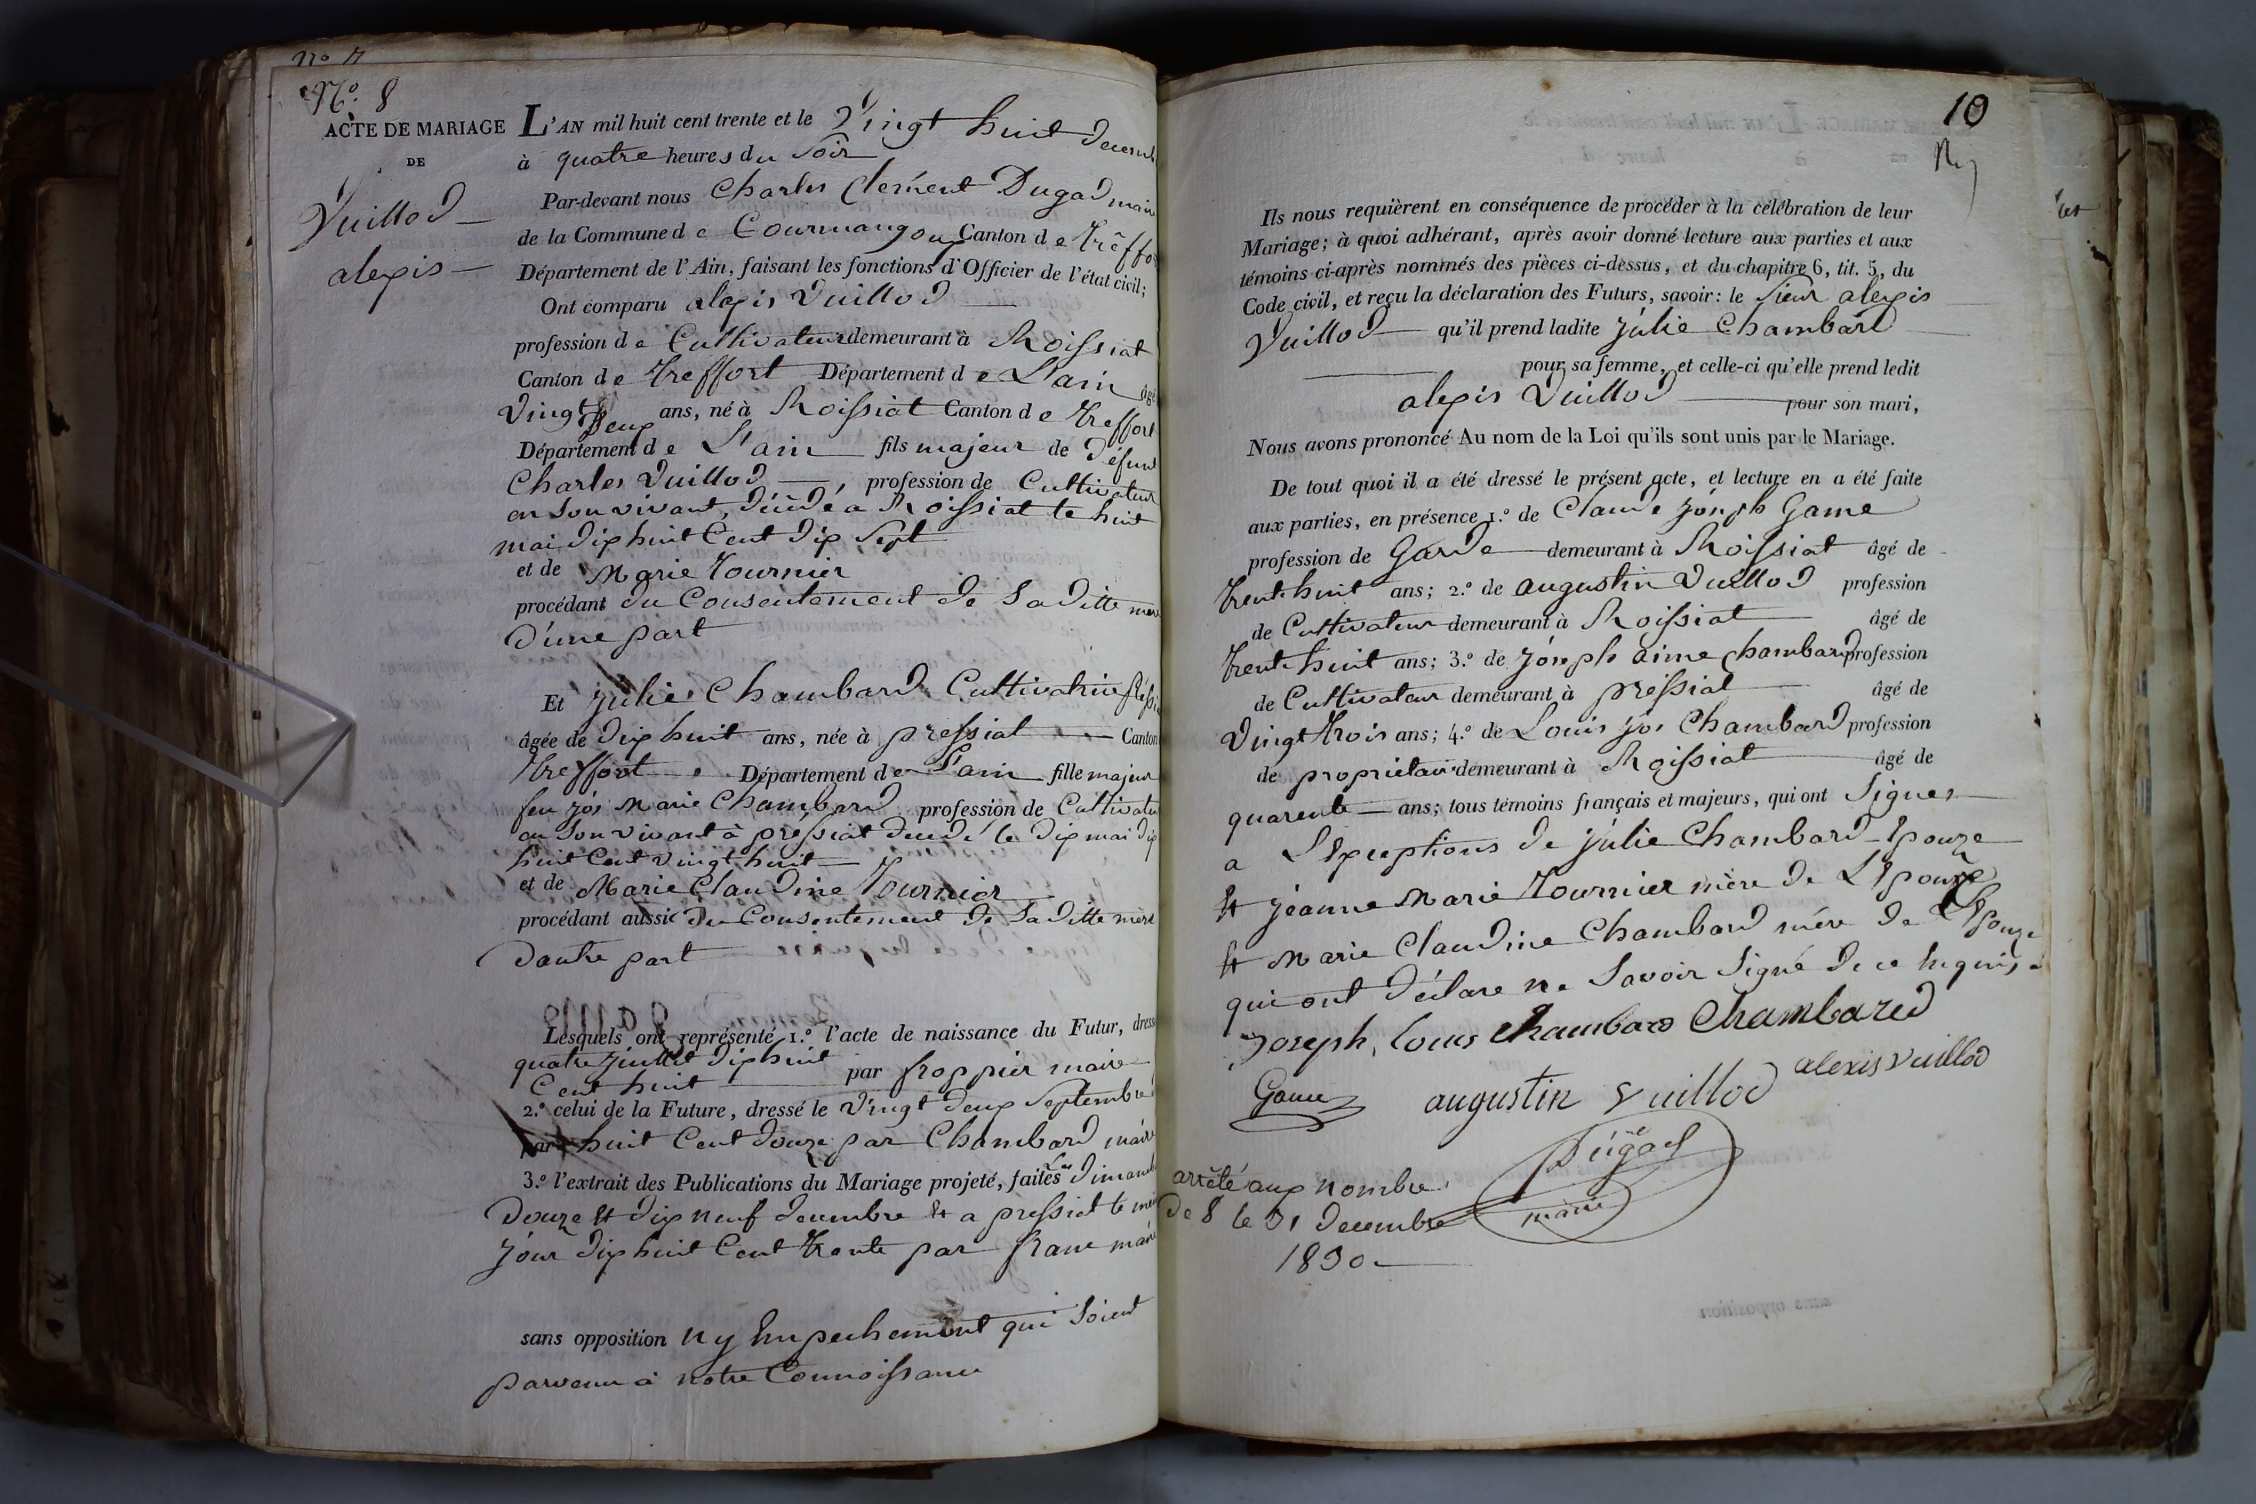 N.o 7
N.o 8
ACTE DE MARIAGE
DE
Vuillod
alexis
L'AN mil huit cent trente et le Vingt huit decemb
à quatre heures du Soir
Par-devant nous Charles Clement Dugad maire
de la Commune de Courmangoux Canton de treffor
Département de l'Ain, faisant les fonctions d'Officier de l'état civil;
Ont comparu alexis Vuillod
profession de Cultivateur demeurant à Roissiat
Canton de treffort Département de L'ain âgé
Vingt
Deux ans, né à Roissiat Canton de treffort
Département de L'ain fils majeur de défunt
Charles Vuillod, profession de Cultivateur
en Son vivant, décédé a Roissiat le huit
mai dix huit Cent dix Sept
et de Marie Tournier
procédant du Consentement de Saditte mere
D'une part
Et julie Chambard Cultivatrice
âgée de dix huit ans, née à pressiat Canton
treffort Département de L'ain fille majeur
feu jos Marie Chambard profession de Cultivateu
en Son vivant à pressiat décédé le dix mai dix
huit Cent vingt huit
et de Marie Claudine Tournier
procédant aussi du Consentement de Saditte mère
Dautre part
Lesquels ont représenté 1.o l'acte de naissance du Futur, dressé
quatre juillet dix huit
Cent huit par froppier maire
2.o celui de la Future, dressé le Vingt deux Septembre
par huit Cent douze par Chambard maire
3.o l'extrait des Publications du Mariage projeté, faites Les dimanch
Douze et dix neuf decembre et a pressiat le même
jour dix huit Cent trente par franc maire
sans opposition ny Empechement qui Soient
parvenu à notre Connoissance
10
Ils nous requièrent en conséquence de procéder à la célébration de leur
Mariage; à quoi adhérant, après avoir donné lecture aux parties et aux
témoins ci-après nommés des pièces ci-dessus, et du chapitre 6, tit. 5, du
Code civil, et reçu la déclaration des Futurs, savoir: le Sieur alexis
Vuillod qu'il prend ladite julie Chambard
pour sa femme, et celle-ci qu'elle prend ledit
alexis Vuillod pour son mari,
Nous avons prononcé Au nom de la Loi qu'ils sont unis par le Mariage.
De tout quoi il a été dressé le présent acte, et lecture en a été faite
aux parties, en présence 1.o de Claude joseph Game
profession de Garde demeurant à Roissiat âgé de
trent huit ans; 2.o de augustin Vuillod profession
de Cultivateur demeurant à Roissiat âgé de
trent huit ans; 3.o de joseph aime chambard profession
de Cultivateur demeurant à pressiat âgé de
Vingt trois ans; 4.o de Louis jos Chambard profession
de proprietair demeurant à Roissiat âgé de
quarente ans; tous témoins français et majeurs, qui ont Signer
a L'Exceptions de julie Chambard Epouze
Et jeanne Marie Tournier mère de L'Epouze
Et Marie Claudine Chambard mére de L'Epouze
qui ont déclare ne Savoir Signé de ce Enquis
joseph, louis chambard Chambared
Game augustin vuillod alexis vuillod
Dugad
maire
arrêté aux nombre
de 8 le 31 decembre
1830
sans opposition